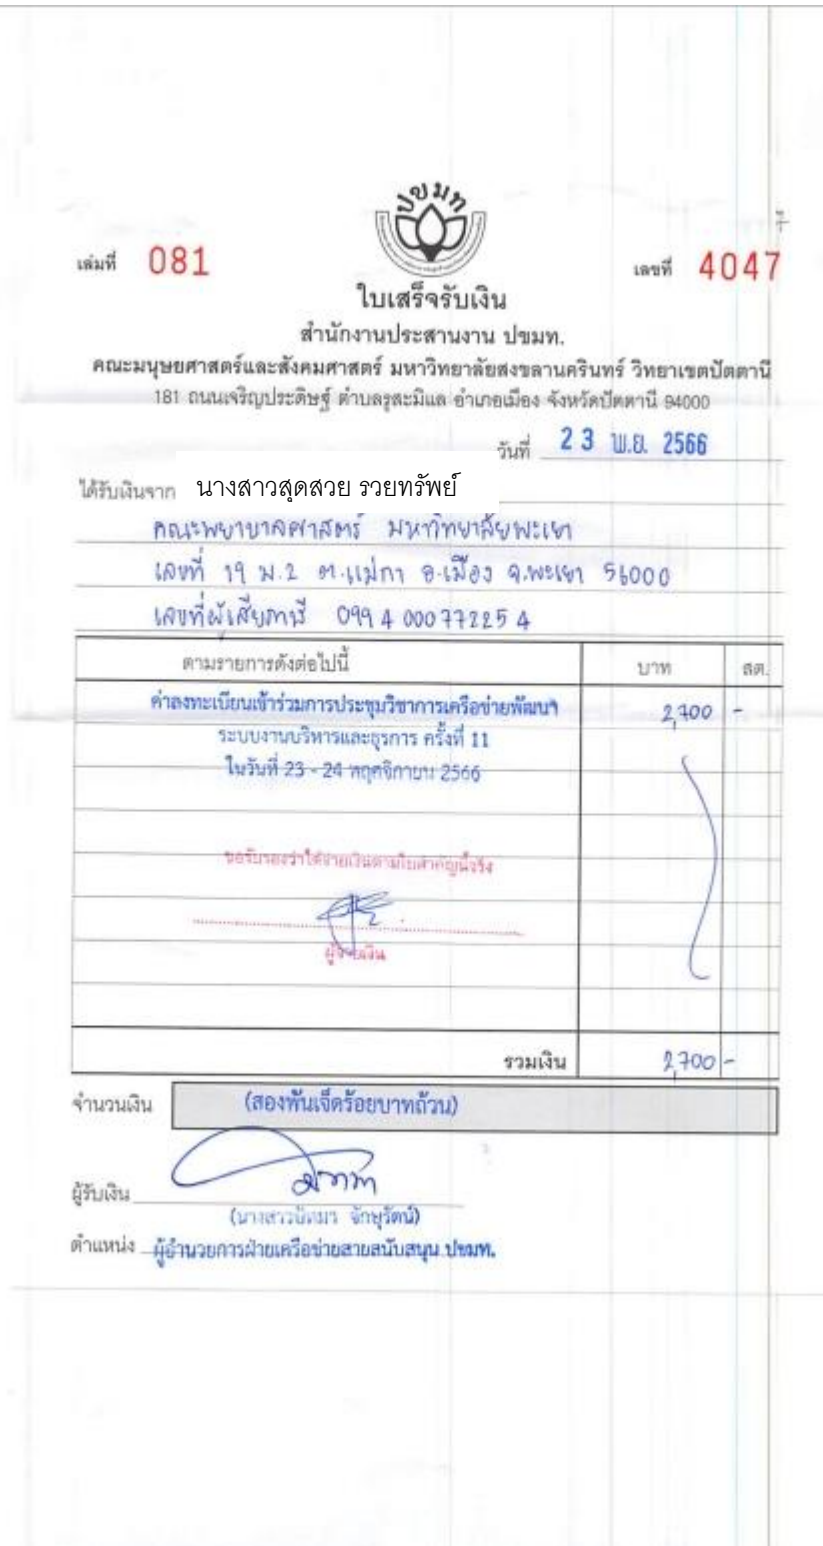 ปขมท
เล่มที่ 081 เลขที่ 4047
ใบเสร็จรับเงิน
สำนักงานประสานงาน ปขมท.
คณะมนุษยศาสตร์และสังคมศาสตร์ มหาวิทยาลัยสงขลานครินทร์ วิทยาเขตปัตตานี
181 ถนนเจริญประดิษฐ์ ตำบลรูสะมิแล อำเภอเมือง จังหวัดปัตตานี 94000
วันที่ 23 พ.ย. 2566
ได้รับเงินจาก นางสาวสุดสวย รวยทรัพย์
คณะพยาบาลศาสตร์ มหาวิทยาลัยพะเยา
เลขที่ 19 ม.2 ต.แม่กา อ.เมือง จ.พะเยา 56000
เลขที่ผู้เสียภาษี 099 4 000 77225 4
ตามรายการดังต่อไปนี้ บาท สต.
ค่าลงทะเบียนเข้าร่วมการประชุมวิชาการเครือข่ายพัฒนา 2,700 -
ระบบงานบริหารและธุรการ ครั้งที่ 11
ในวันที่ 23 - 24 พฤศจิกายน 2566
ขอรับรองว่าได้จ่ายเงินตามใบสำคัญนี้จริง
ผู้จ่ายเงิน
รวมเงิน 2,700 -
จำนวนเงิน (สองพันเจ็ดร้อยบาทถ้วน)
ผู้รับเงิน
(นางสาวปัทมา จักษุรัตน์)
ตำแหน่ง ผู้อำนวยการฝ่ายเครือข่ายสายสนับสนุน ปขมท.